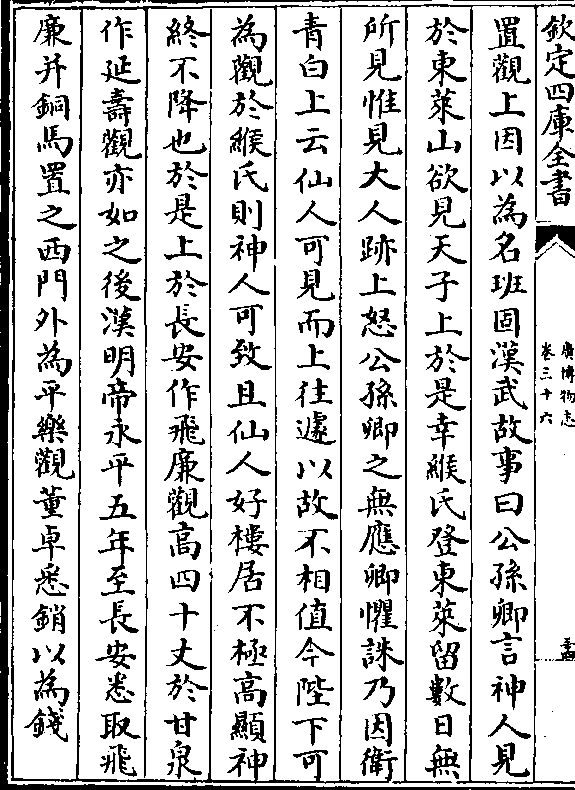 欽定四庫全書
廣博物志
卷三十六
置觀上因以為名班固漢武故事曰公孫卿言神人見
於東萊山欲見天子上於是幸緱氏登東萊留數日無
所見惟見大人跡上怒公孫卿之無應卿懼誅乃因衛
青白上云仙人可見而上往遽以故不相值今陛下可
為觀於緱氏則神人可致且仙人好樓居不極高顯神
終不降也於是上於長安作飛廉觀高四十丈於甘泉
作延壽觀亦如之後漢明帝永平五年至長安悉取飛
廉并銅馬置之西門外為平樂觀董卓悉銷以為錢